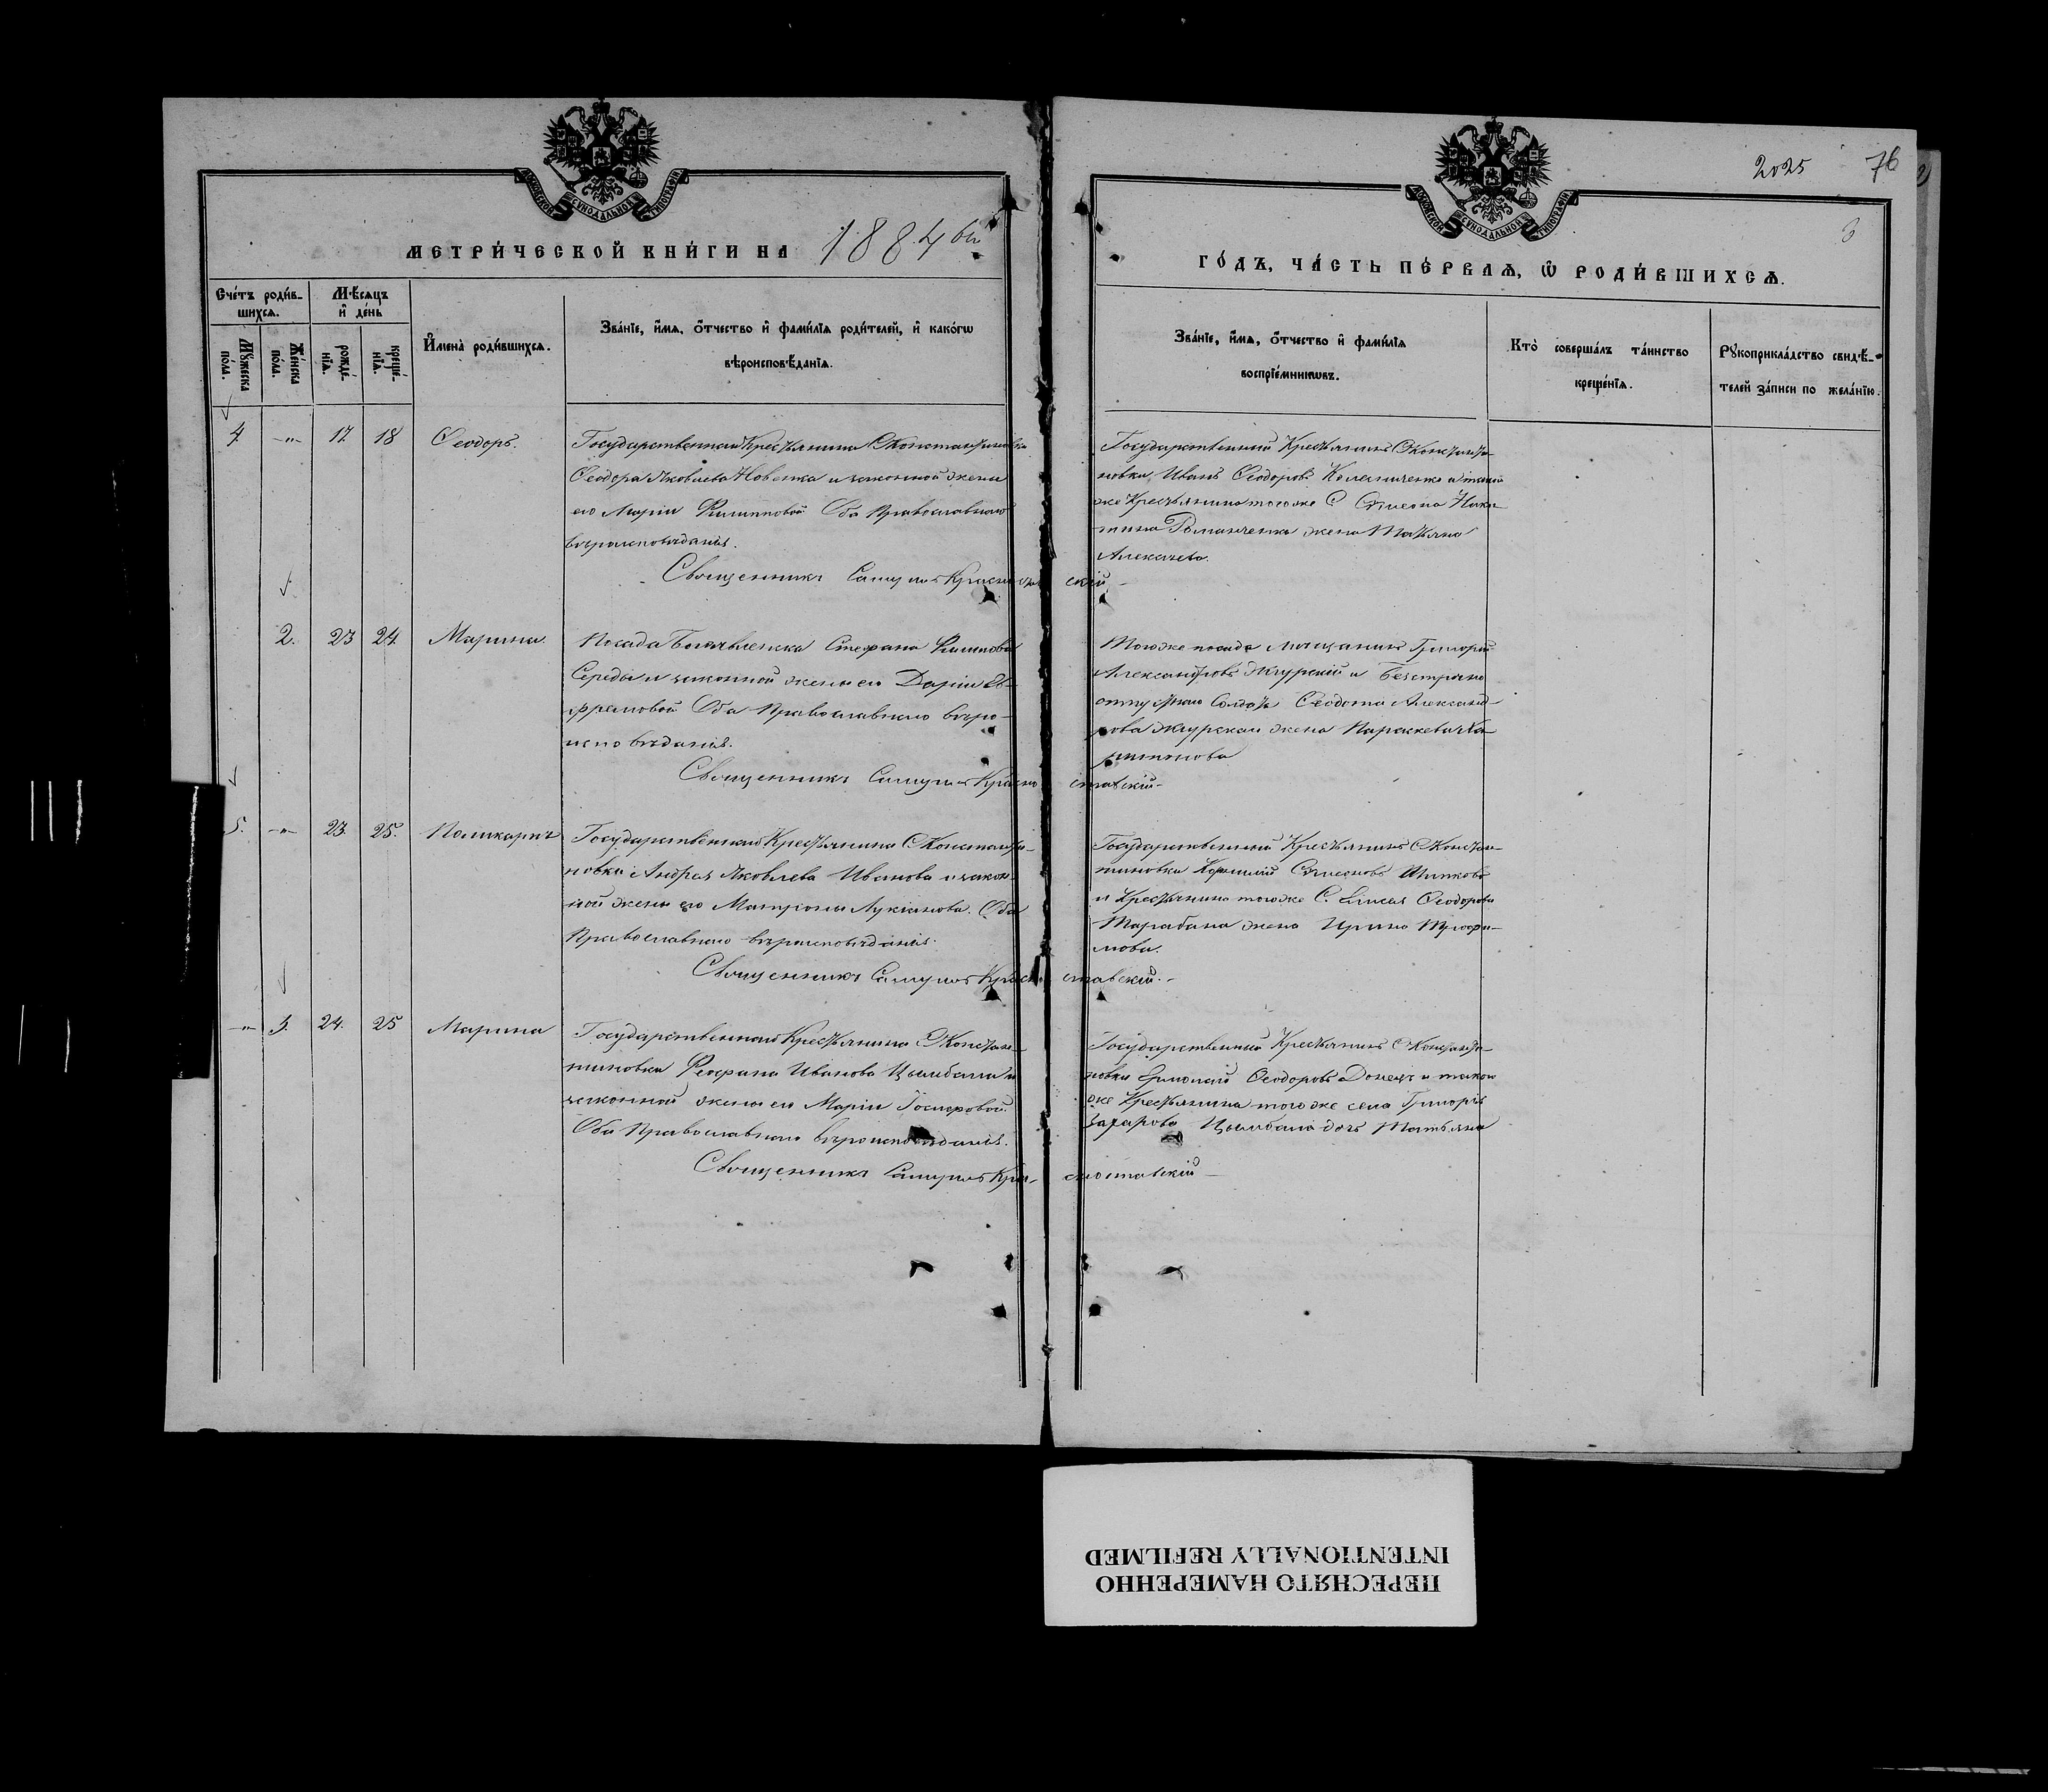 МОСКОВСКОЙ СУНОДАЛЬНОЙ ТИПОГРАФІИ
МЕТРИ́ЧЕСКОЙ КНИ́ГИ НА 1884 ый
Сче́тъ роди́в-
шихсѧ.
Мѣ́сѧцъ
и҆ де́нь
Мꙋ́жеска по́ла.
Же́нска по́ла.
рожде́-
нїѧ.
креще́-
нїѧ.
И҆мена̀ роди́вшихсѧ.
Зва́нїе, и҆́мѧ, ѻ҆́тчество и҆ фами́лїѧ роди́телей, и҆ како́гѡ
вѣроисповѣ́данїѧ.
4. -"- 17 18 Ѳеодоръ.
Государственнаго Крестьянина С Константиновки
Ѳеодора Яковлева Новенка и законной жены
его Маріи Филипповой Оба Православнаго
вѣроисповѣданія.
Священникъ Самуилъ Красноставскій
2. 23 24 Марина
Посада Богоявленска Стефана Филипова
Середы и законной жены его Даріи Ев-
фремовой Оба Православнаго вѣро-
исповѣданія.
Священникъ Самуилъ Красноставскій
5. -"- 23. 25. Поликарпъ
Государственнаго Крестьянина С Константи-
новки Андрея Яковлева Иванова и закон-
ной жены его Матроны Лукіановой. Оба
Православнаго вѣроисповѣданія.
Священникъ Самуилъ Красноставскій
-"- 3. 24. 25 Марина
Государственнаго Крестьянина С Констан-
тиновки Ивanова Цымбала и
законной жены его Маріи Іосифовой.
Оба Православнаго вѣроисповѣданія.
Священникъ Самуилъ Красноставскій
2025 76
МОСКОВСКОЙ СУНОДАЛЬНОЙ ТИПОГРАФІИ
ГО́ДЪ, ЧА́СТЬ ПЕ́РВАѦ, Ѽ РОДИ́ВШИХСѦ.
Зва́нїе, и҆́мѧ, ѻ҆́тчество и҆ фами́лїѧ
воспрїе́мникѡвъ.
Кто̀ соверша́лъ та́инство
креще́нїѧ.
Рꙋкоприкла́дство свидѣ́-
телей за́писи по жела́нїю.
Государственный Крестьянинъ С Константи-
новки Иванъ Ѳеодоровъ Колесниченко и такой
же Крестьянина того же С Симеона Ники-
тина Романченка жена Татьяна
Алексѣева.
Того же посада мѣщанинъ Григорій
Александровъ Жгурскій и Безсрочно
отпускнаго Солдата Ѳеодота Александ-
рова Жгурскаго жена Параскева
Государственный Крестьянинъ С Констан-
тиновки Корнилій Симеоновъ Шипковъ
и Крестьянина того же С. Ѳеодорова
Тарабана жена Ирина Трофи-
мова.
Государственный Крестьянинъ С Константи-
новки Ермолай Ѳеодоровъ Донецъ и такого
же Крестьянина того же села Григорія
Захарова Цымбала дочь Татьяна
ПЕРЕСНЯТО НАМЕРЕННО
INTENTIONALLY REFILMED